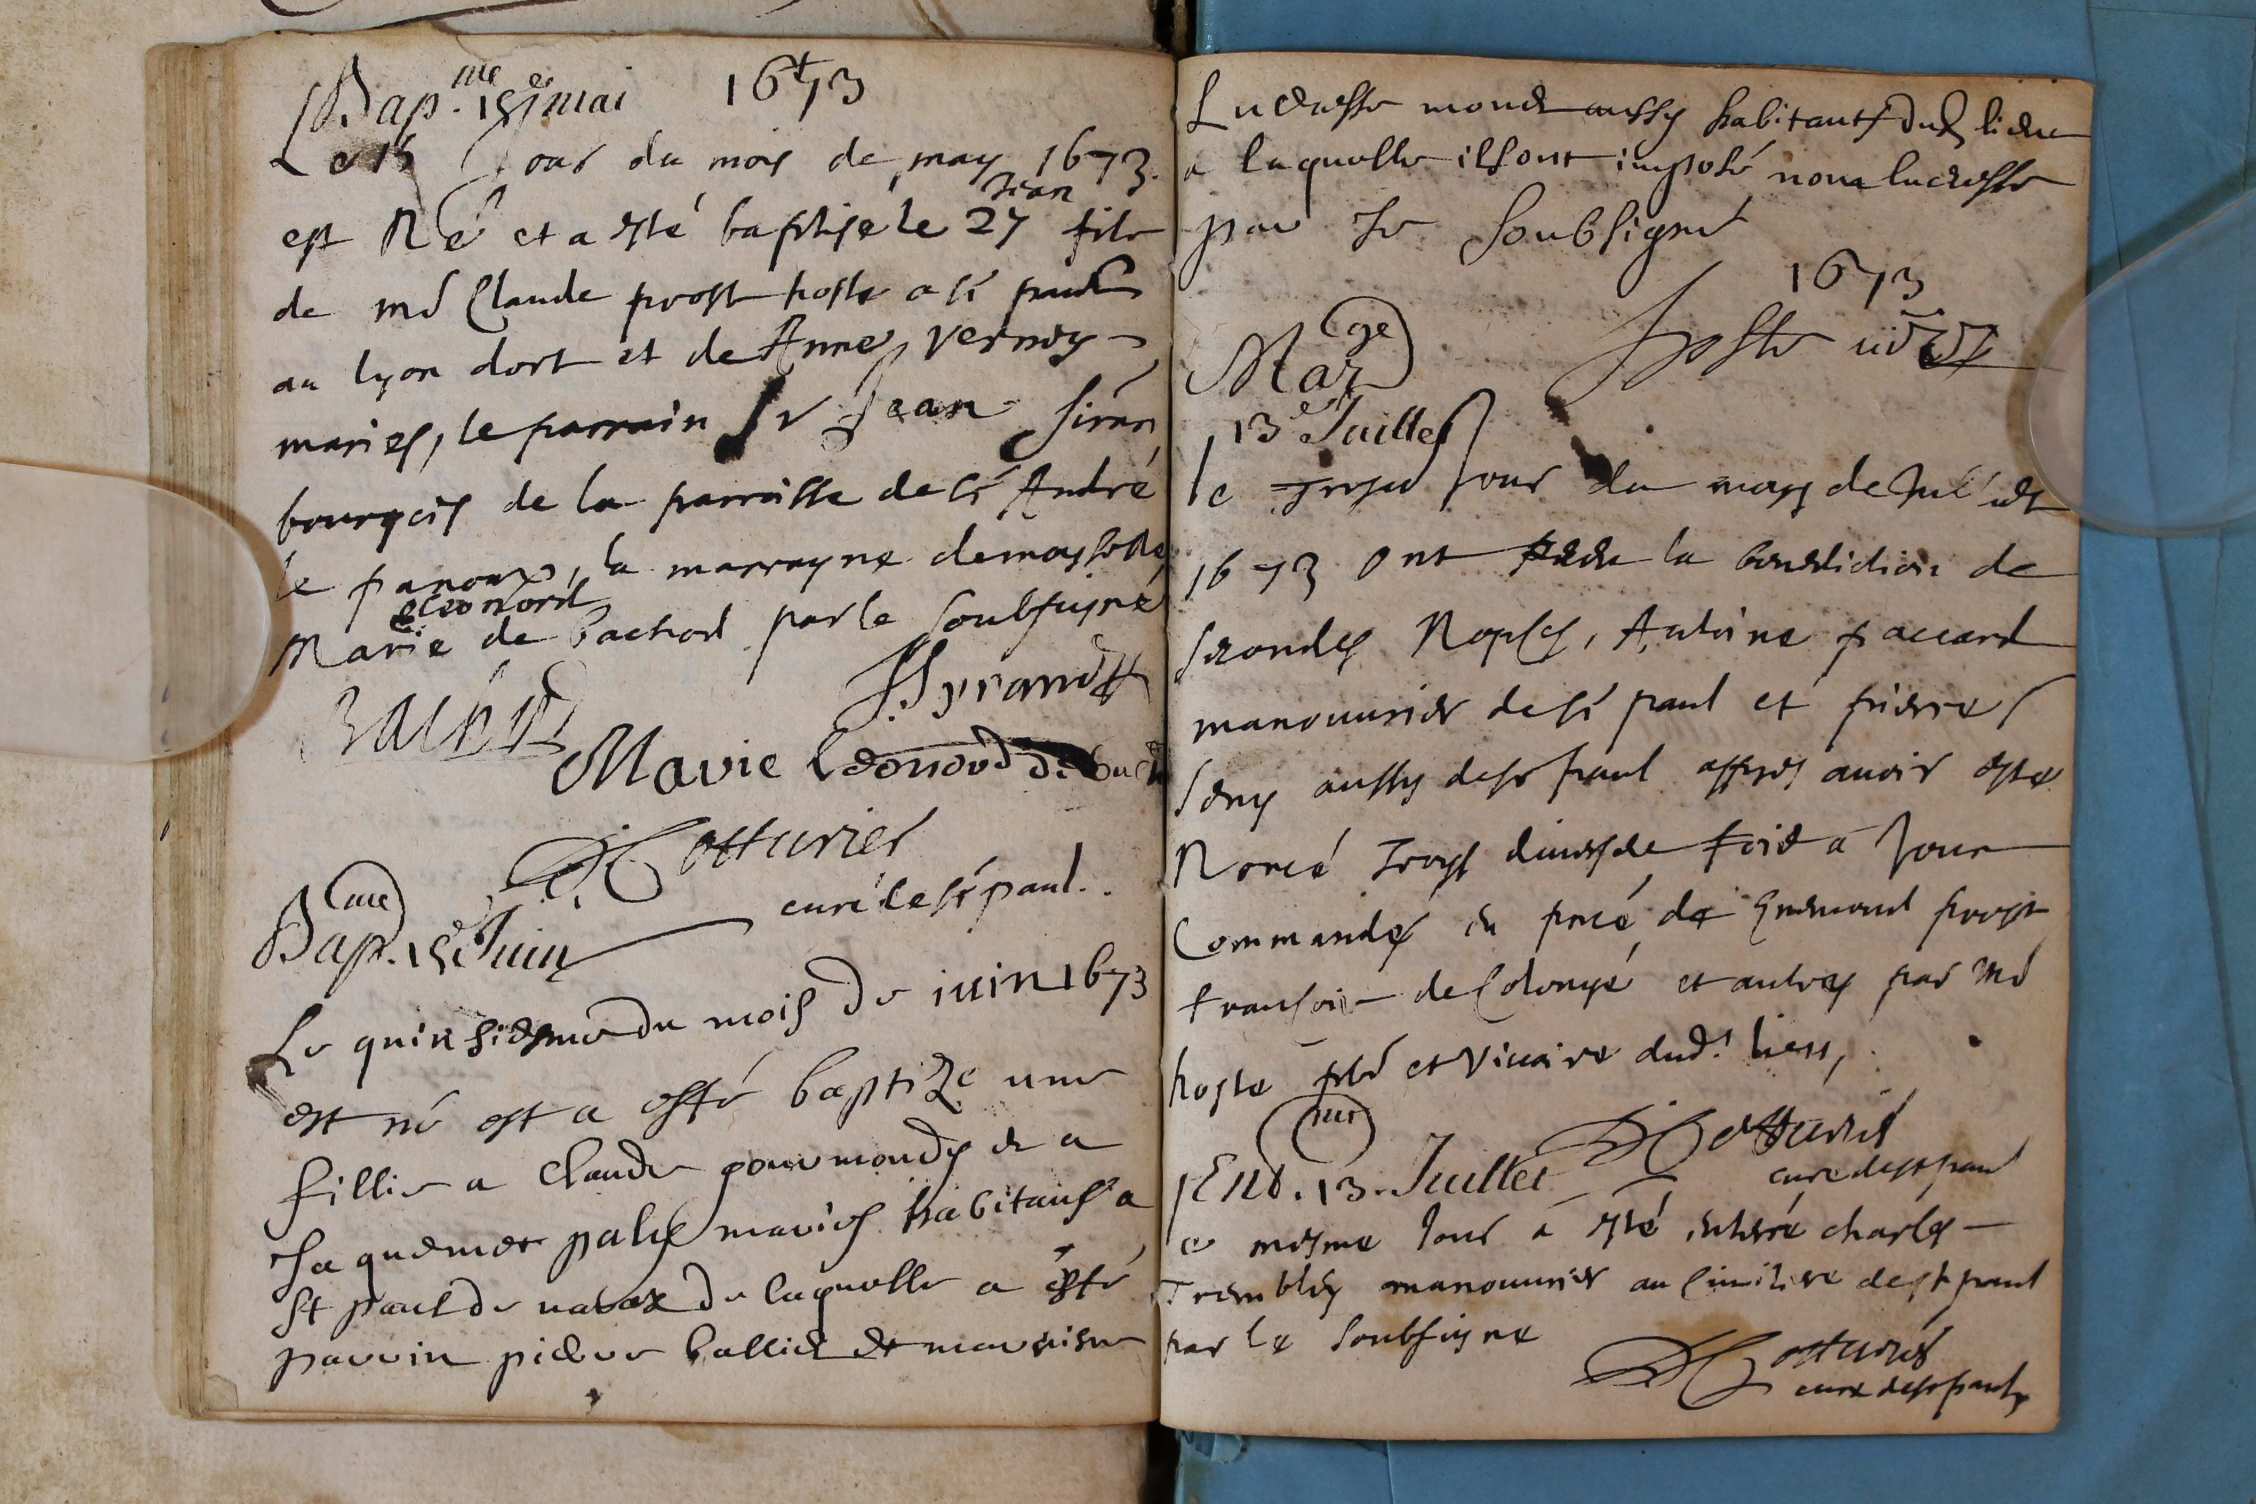 1673
Bap.me 15e mai
Le 15 Jour du mois de may 1673.
est Né et a esté baptisé le 27 Jean fils
de md Claude prost hoste a st paul
au lyon dort et de Anne Verney
mariés, le parrain Sr Jean Siran
bourgois de la parroisse de st André
le panoux, la marrayne demoyselle
Marie eleonord de bachod par le soubsigné
JSyrand
Marie Leonord de bach
Cotturier
curé de st paul.
Bap.me 15e Juin
Le quinsiesme du mois de iuin 1673
est né est a esté baptize une
fillie a Claude pourmondy et a
Jaquemer mariés habitans a
St paul de varax de laquelle a esté
parrin pierre ballied et marrine
Lucresse monet aussy habitants dud lieu
a laquelle ils ont imposé nom lucresse
par Je Soubsigné
1673
hoste vicre
Marge
13e Juillet
le Jour du moys de
1673 ont la benediction de
secondes Nopces, Antoine paccard
manouurier de st paul et pierre
aussy de st paul appres auoir esté
Noncé Troys diuerse fois a Jour
Commandés en pnce de prost
de Colonge et autres par Md
hoste pbr et Vicaire dud.t lieu,
Cotturier
cure de st paul
Ent.mt 13. Juillet
Ce mesme Jour a esté enterré charles
Trembley manouurier au Cimitiere de st paul
par le soubsigne
Cotturier
cure de st paul